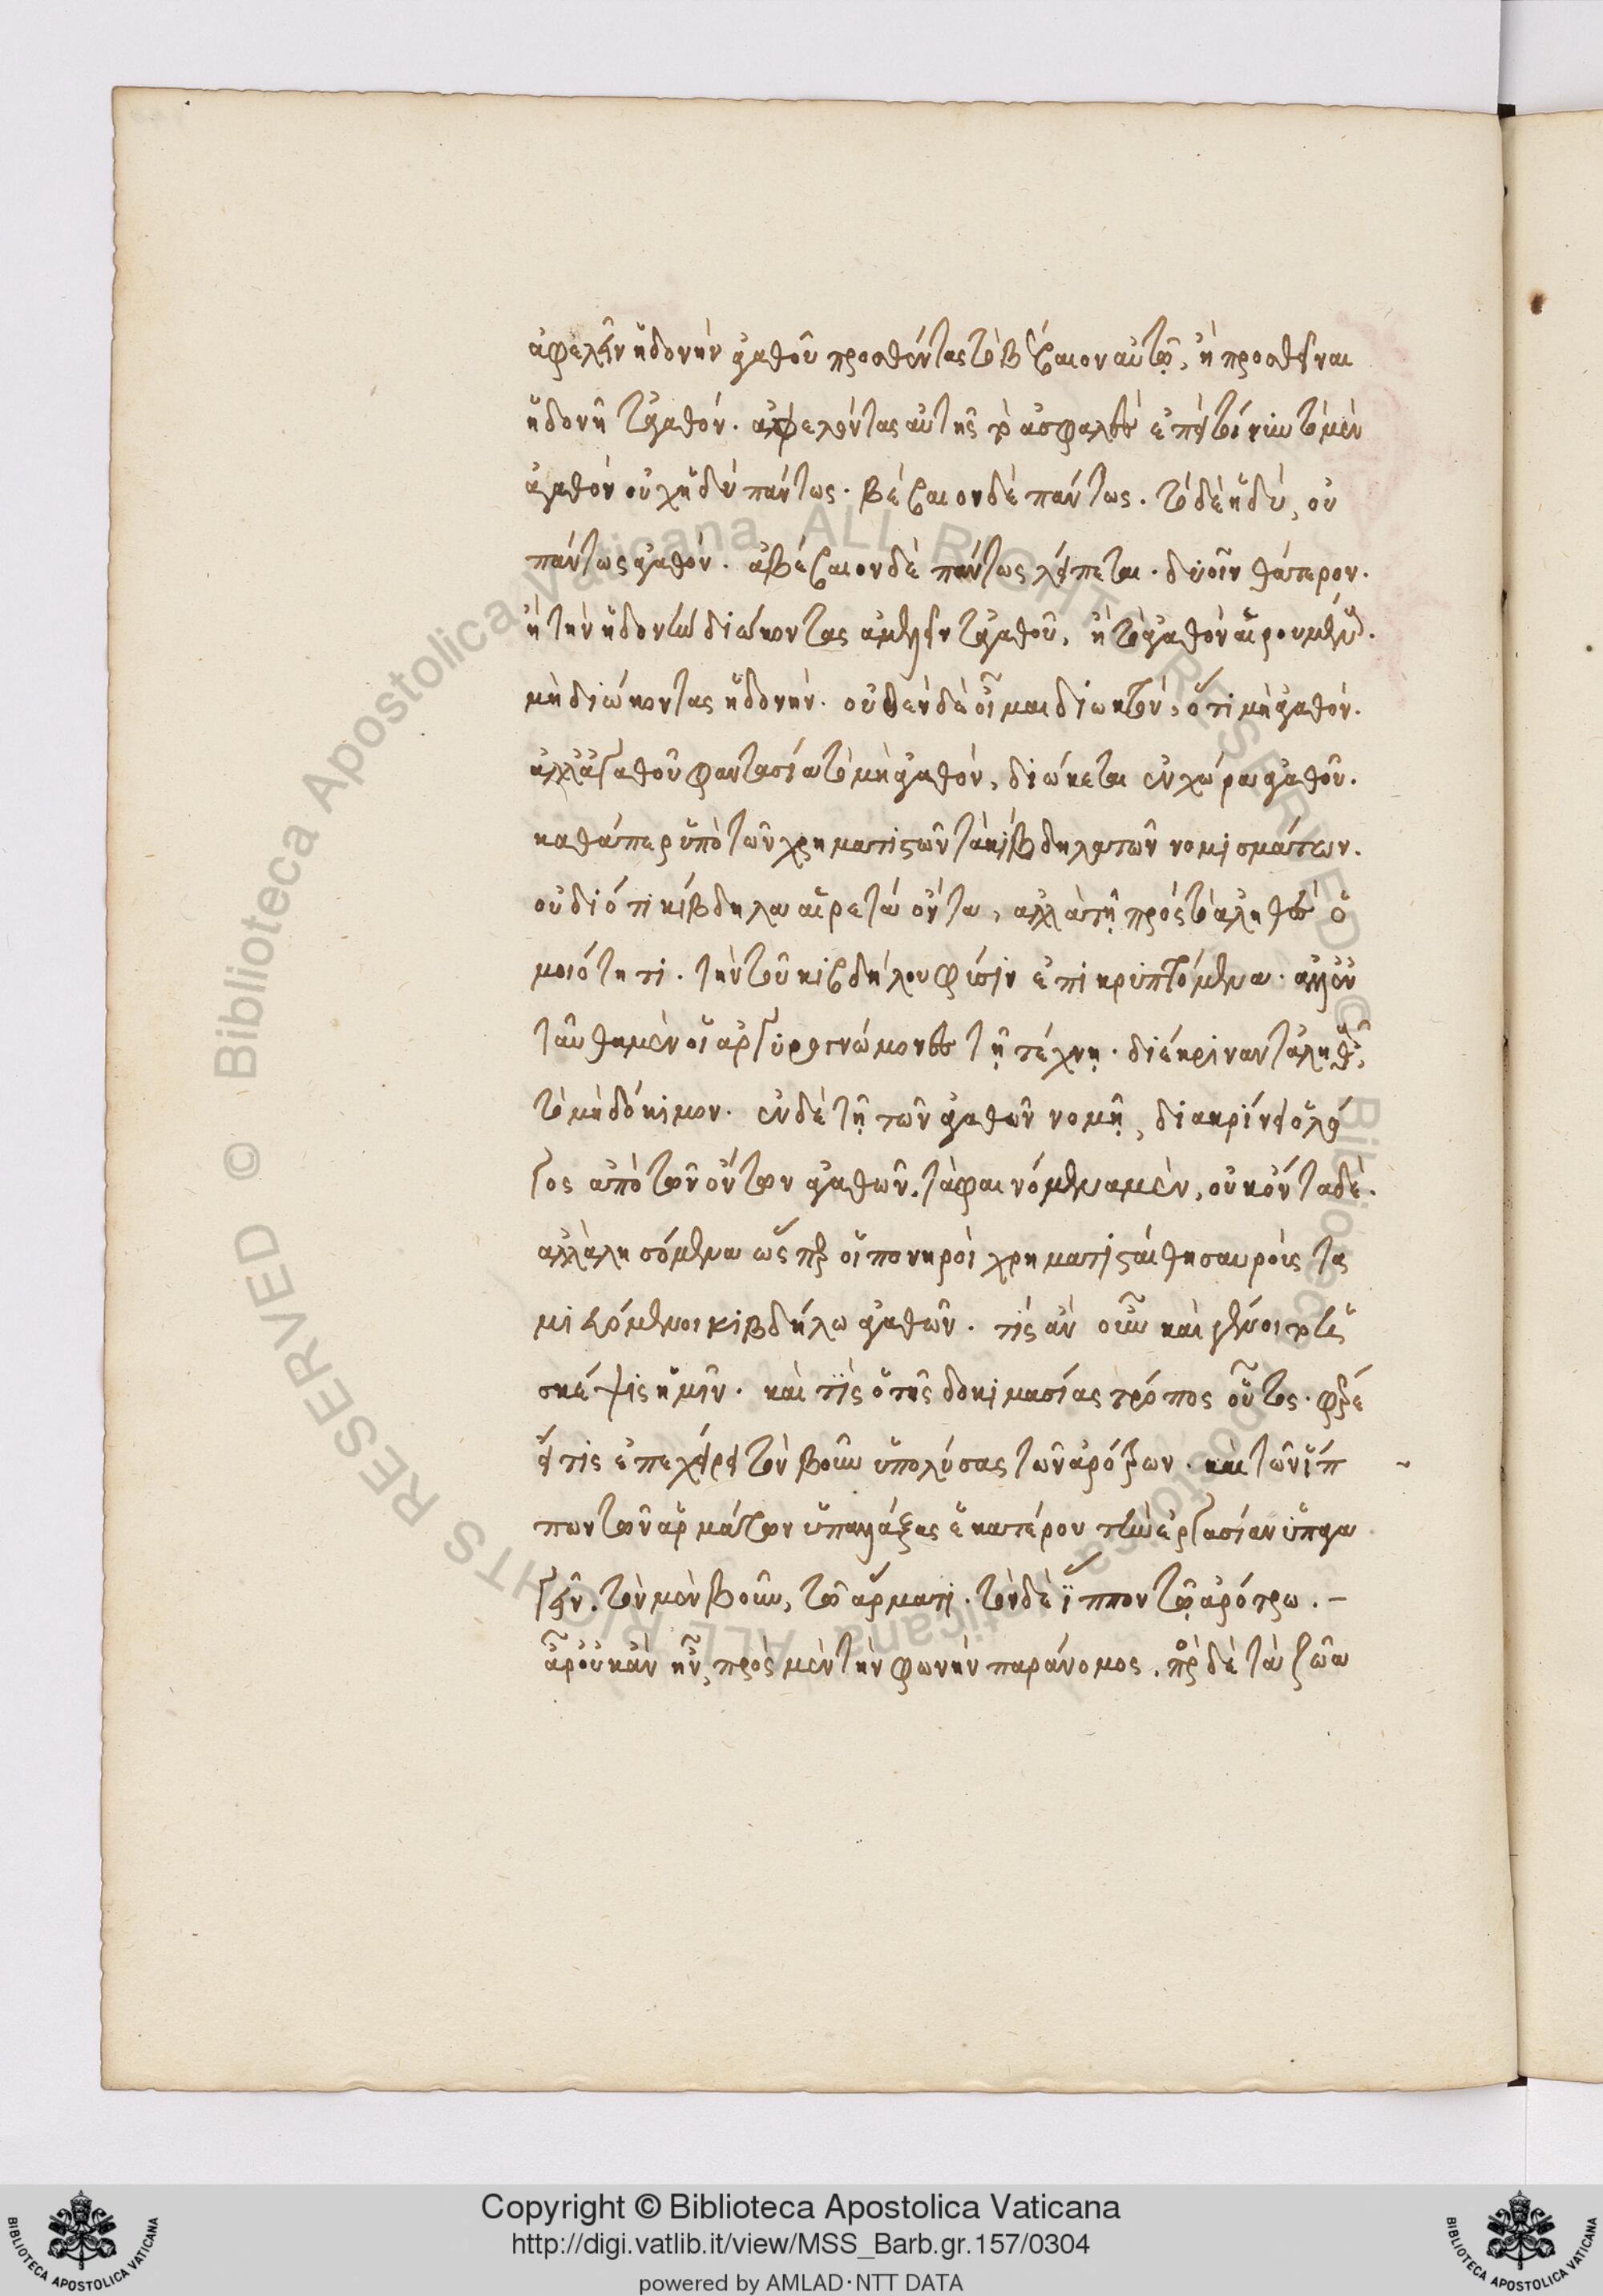 ἀφελεῖν ἡδονὴν ἀγαθοῦ προσθέντας τὸ βέβαιον αὐτῷ, ἢ προσθεῖναι
ἡδονῇ τἀγαθόν. ἀφελόντας αὐτῆς τὸ ἀσφαλές ἐπεὶ τοίνυν τὸ μὲν
ἀγαθὸν οὐχ ἡδὺ πάντως. βέβαιον δὲ πάντως. τὸ δὲ ἡδύ, οὐ
πάντως ἀγαθόν. ἀβέβαιον δὲ πάντως λείπεται. δυοῖν θάτερον.
ἢ τὴν ἡδονὴν διώκοντας ἀμελεῖν τἀγαθοῦ, ἢ τὸ ἀγαθὸν αἱρουμένους.
μὴ διώκοντας ἡδονήν. οὐδὲν δὲ οἶμαι διωκτόν, ὅτι μὴ ἀγαθόν.
ἀλλὰ ἀγαθοῦ φαντασία τὸ μὴ ἀγαθόν, διώκεται ἐν χώρα ἀγαθοῦ.
καθάπερ ὑπὸ τῶν χρηματιστῶν τὰ κίβδηλα τῶν νομισμάτων.
οὐ διότι κίβδηλα αἱρετὰ ὄντα, ἀλλὰ τῇ πρὸς τὸ ἀληθὲς ὁ
μοιότητι. τὴν τοῦ κιβδήλου φύσιν ἐπικρυπτόμενα. ἀλλ' ἐν
ταῦθα μὲν οἱ ἀργυρογνώμονες τῇ τέχνῃ. διέκριναν τἀληθεῖ,
τὸ μὴ δόκιμον. ἐν δὲ τῇ τῶν ἀγαθῶν νομῇ, διακρίνει ὁ λό
γος ἀπὸ τῶν ὄντων ἀγαθῶν. τὰ φαινόμενα μὲν, οὐκ ὄντα δὲ.
ἀλλὰ λησόμενα ὥσπερ οἱ πονηροὶ χρηματισταὶ θησαυροὺς τα
μιευόμενοι κιβδήλω ἀγαθῶν. τίς ἂν οὖν καὶ γένοιτο
σκέψις ἡμῖν. καὶ τίς ὁ τῆς δοκιμασίας τρόπος οὗτος. φέρε
εἴ τις ἐπεχείρει τὸν βοῦν ὑπολύσας τῶν ἀρότρων. καὶ τὸν ἵπ
πον τῶν ἁρμάτων ὑπαλλάξας ἑκατέρου τὴν ἐργασίαν ὑπαγα
γεῖν. τὸν μὲν βοῦν, τῷ ἅρματι. τὸν δὲ ἵππον τῷ ἀρότρω.–
ἆρ' οὐκ ἂν ἦν, πρὸς μὲν τὴν φωνὴν παράνομος, πρὸς δὲ τὰ ζῶα
Copyright © Biblioteca Apostolica Vaticana
http://digi.vatlib.it/view/MSS_Barb.gr.157/0304
powered by AMLAD·NTT DATA